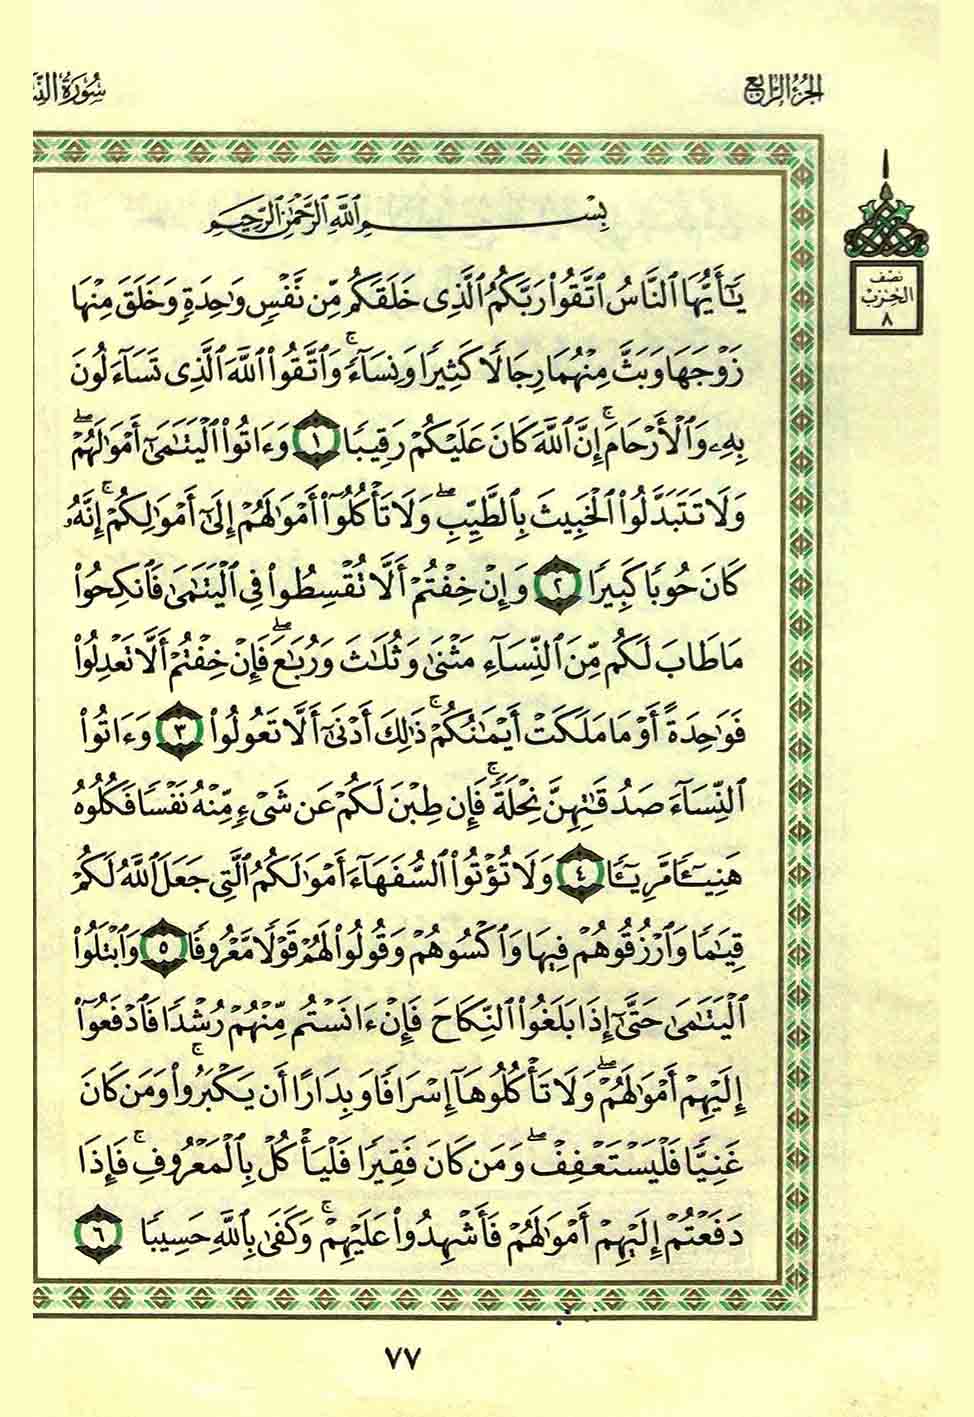 الجزء الرابع
سورة
بِسْمِ اللَّهِ الرَّحْمَٰنِ الرَّحِيمِ
١
نصف
الحزب
٨
يَٰٓأَيُّهَا ٱلنَّاسُ ٱتَّقُوا۟ رَبَّكُمُ ٱلَّذِى خَلَقَكُم مِّن نَّفْسٍ وَٰحِدَةٍ وَخَلَقَ مِنْهَا
زَوْجَهَا وَبَثَّ مِنْهُمَا رِجَالًا كَثِيرًا وَنِسَآءً ۚ وَٱتَّقُوا۟ ٱللَّهَ ٱلَّذِى تَسَآءَلُونَ
بِهِۦ وَٱلْأَرْحَامَ ۚ إِنَّ ٱللَّهَ كَانَ عَلَيْكُمْ رَقِيبًا ١ وَءَاتُوا۟ ٱلْيَتَٰمَىٰٓ أَمْوَٰلَهُمْ ۖ
وَلَا تَتَبَدَّلُوا۟ ٱلْخَبِيثَ بِٱلطَّيِّبِ ۖ وَلَا تَأْكُلُوٓا۟ أَمْوَٰلَهُمْ إِلَىٰٓ أَمْوَٰلِكُمْ ۚ إِنَّهُۥ
كَانَ حُوبًا كَبِيرًا ٢ وَإِنْ خِفْتُمْ أَلَّا تُقْسِطُوا۟ فِى ٱلْيَتَٰمَىٰ فَٱنكِحُوا۟
مَا طَابَ لَكُم مِّنَ ٱلنِّسَآءِ مَثْنَىٰ وَثُلَٰثَ وَرُبَٰعَ ۖ فَإِنْ خِفْتُمْ أَلَّا تَعْدِلُوا۟
فَوَٰحِدَةً أَوْ مَا مَلَكَتْ أَيْمَٰنُكُمْ ۚ ذَٰلِكَ أَدْنَىٰٓ أَلَّا تَعُولُوا۟ ٣ وَءَاتُوا۟
ٱلنِّسَآءَ صَدُقَٰتِهِنَّ نِحْلَةً ۚ فَإِن طِبْنَ لَكُمْ عَن شَىْءٍ مِّنْهُ نَفْسًا فَكُلُوهُ
هَنِيٓـًٔا مَّرِيٓـًٔا ٤ وَلَا تُؤْتُوا۟ ٱلسُّفَهَآءَ أَمْوَٰلَكُمُ ٱلَّتِى جَعَلَ ٱللَّهُ لَكُمْ
قِيَٰمًا وَٱرْزُقُوهُمْ فِيهَا وَٱكْسُوهُمْ وَقُولُوا۟ لَهُمْ قَوْلًا مَّعْرُوفًا ٥ وَٱبْتَلُوا۟
ٱلْيَتَٰمَىٰ حَتَّىٰٓ إِذَا بَلَغُوا۟ ٱلنِّكَاحَ فَإِنْ ءَانَسْتُم مِّنْهُمْ رُشْدًا فَٱدْفَعُوٓا۟
إِلَيْهِمْ أَمْوَٰلَهُمْ ۖ وَلَا تَأْكُلُوهَآ إِسْرَافًا وَبِدَارًا أَن يَكْبَرُوا۟ ۚ وَمَن كَانَ
غَنِيًّا فَلْيَسْتَعْفِفْ ۖ وَمَن كَانَ فَقِيرًا فَلْيَأْكُلْ بِٱلْمَعْرُوفِ ۚ فَإِذَا
دَفَعْتُمْ إِلَيْهِمْ أَمْوَٰلَهُمْ فَأَشْهِدُوا۟ عَلَيْهِمْ ۚ وَكَفَىٰ بِٱللَّهِ حَسِيبًا ٦
٧٧